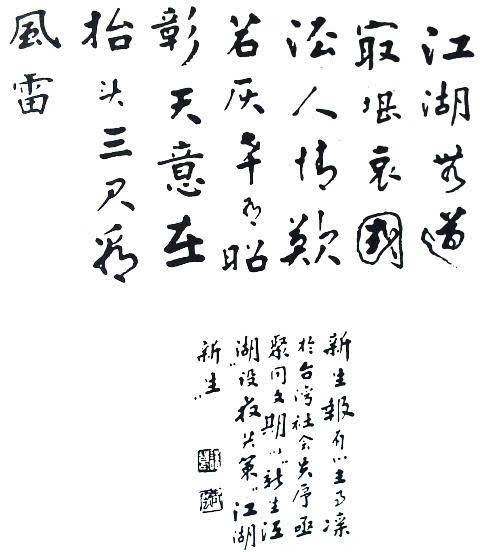 江湖無道
最堪哀國
法人情歎
若灰幸有昭
彰天意在
抬头三尺有
風雷
新生報有心主事凜
於台灣社会失序亟
聚同文期以"新生江
湖"設救策"江湖
新生"